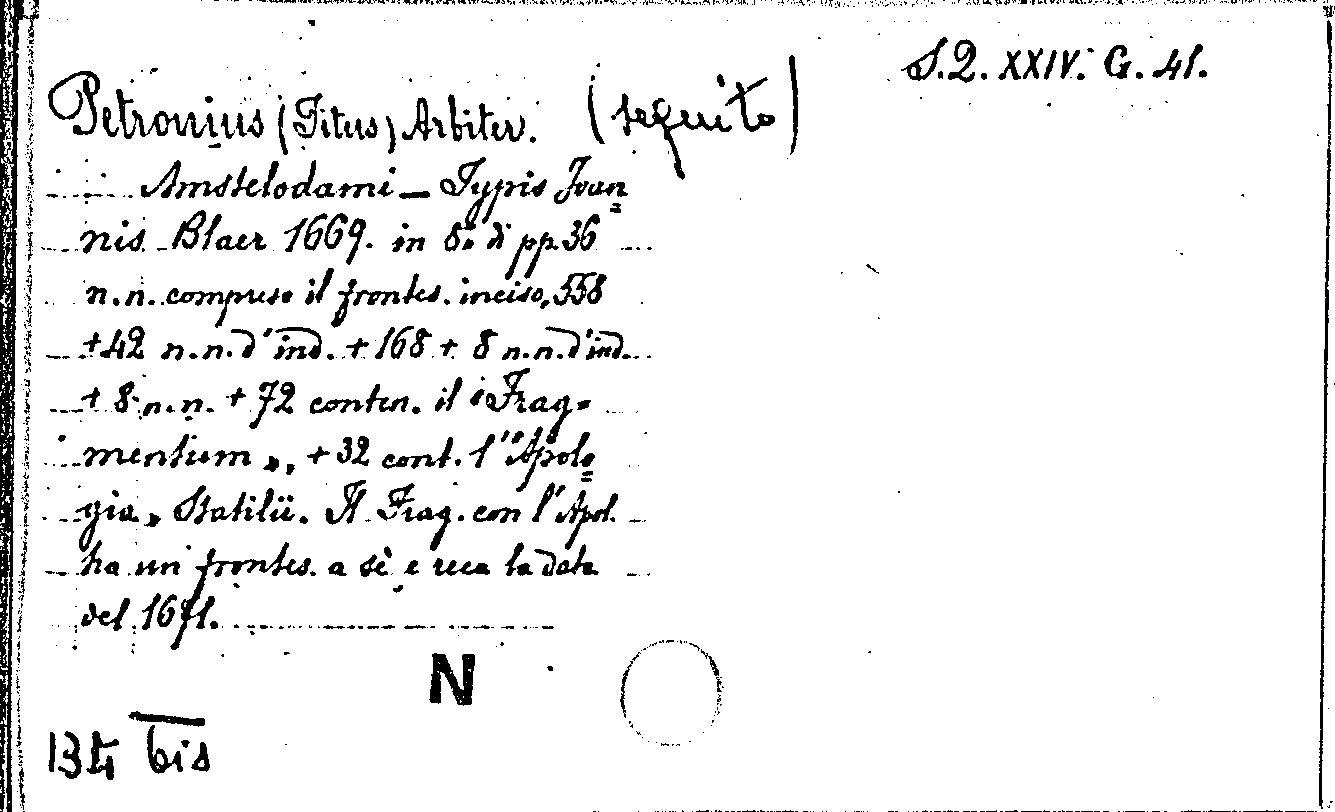 S.Q. XXIV. G. 41.
Petronius (Titus) Arbiter. (seguito)
Amstelodami – Typis Joan=
nis Blaer 1669. in 8.° di pp. 36
n.n. compreso il frontes. inciso, 558
+ 42 n.n. d'ind. + 168 + 8 n.n. d'ind.
+ 8 n.n. + 72 conten. il "Frag=
mentum", + 32 cont. l'"Apolo=
gia" Statilii. Il Frag. con l'Apol.
ha un frontes. a sè e reca la data
del 1671.
N
134 bis